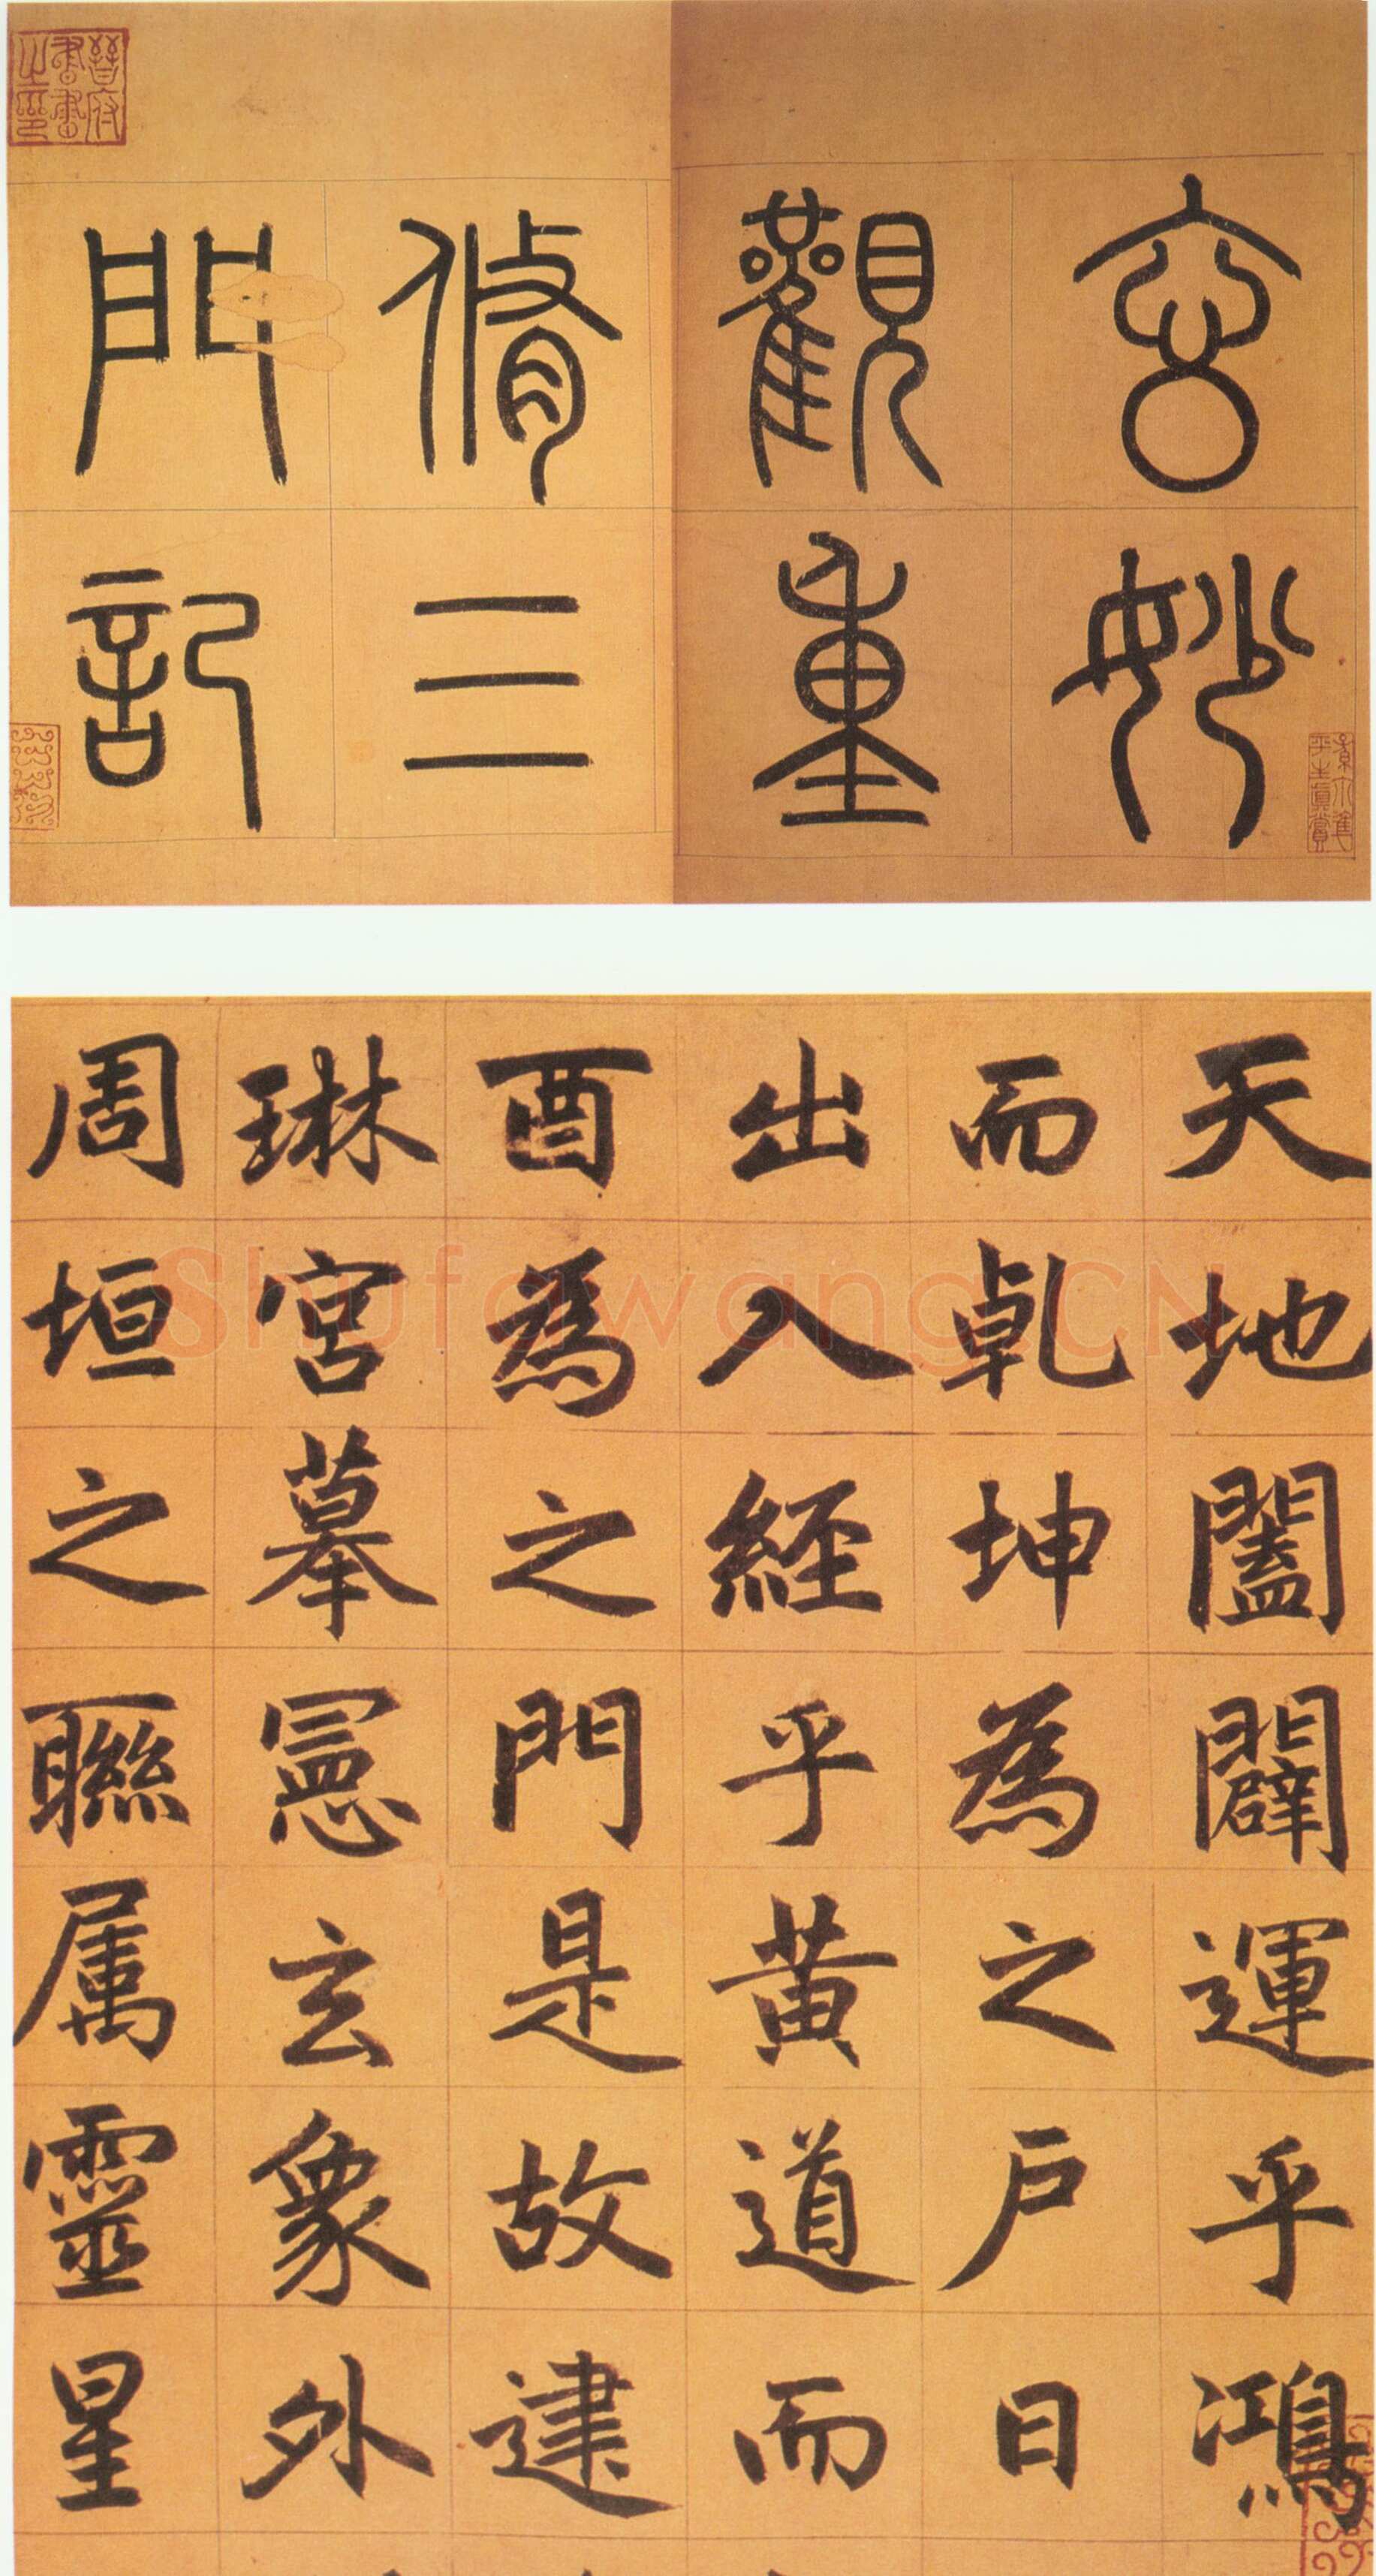 玄妙
觀重
脩三
門記
晉府書畫之印
天地闔闢運乎鴻
而乾坤為之戶日
出入經乎黃道而
酉為之門是故建
琳宮摹憲玄象外
周垣之聯属靈星
Shufawang.CN